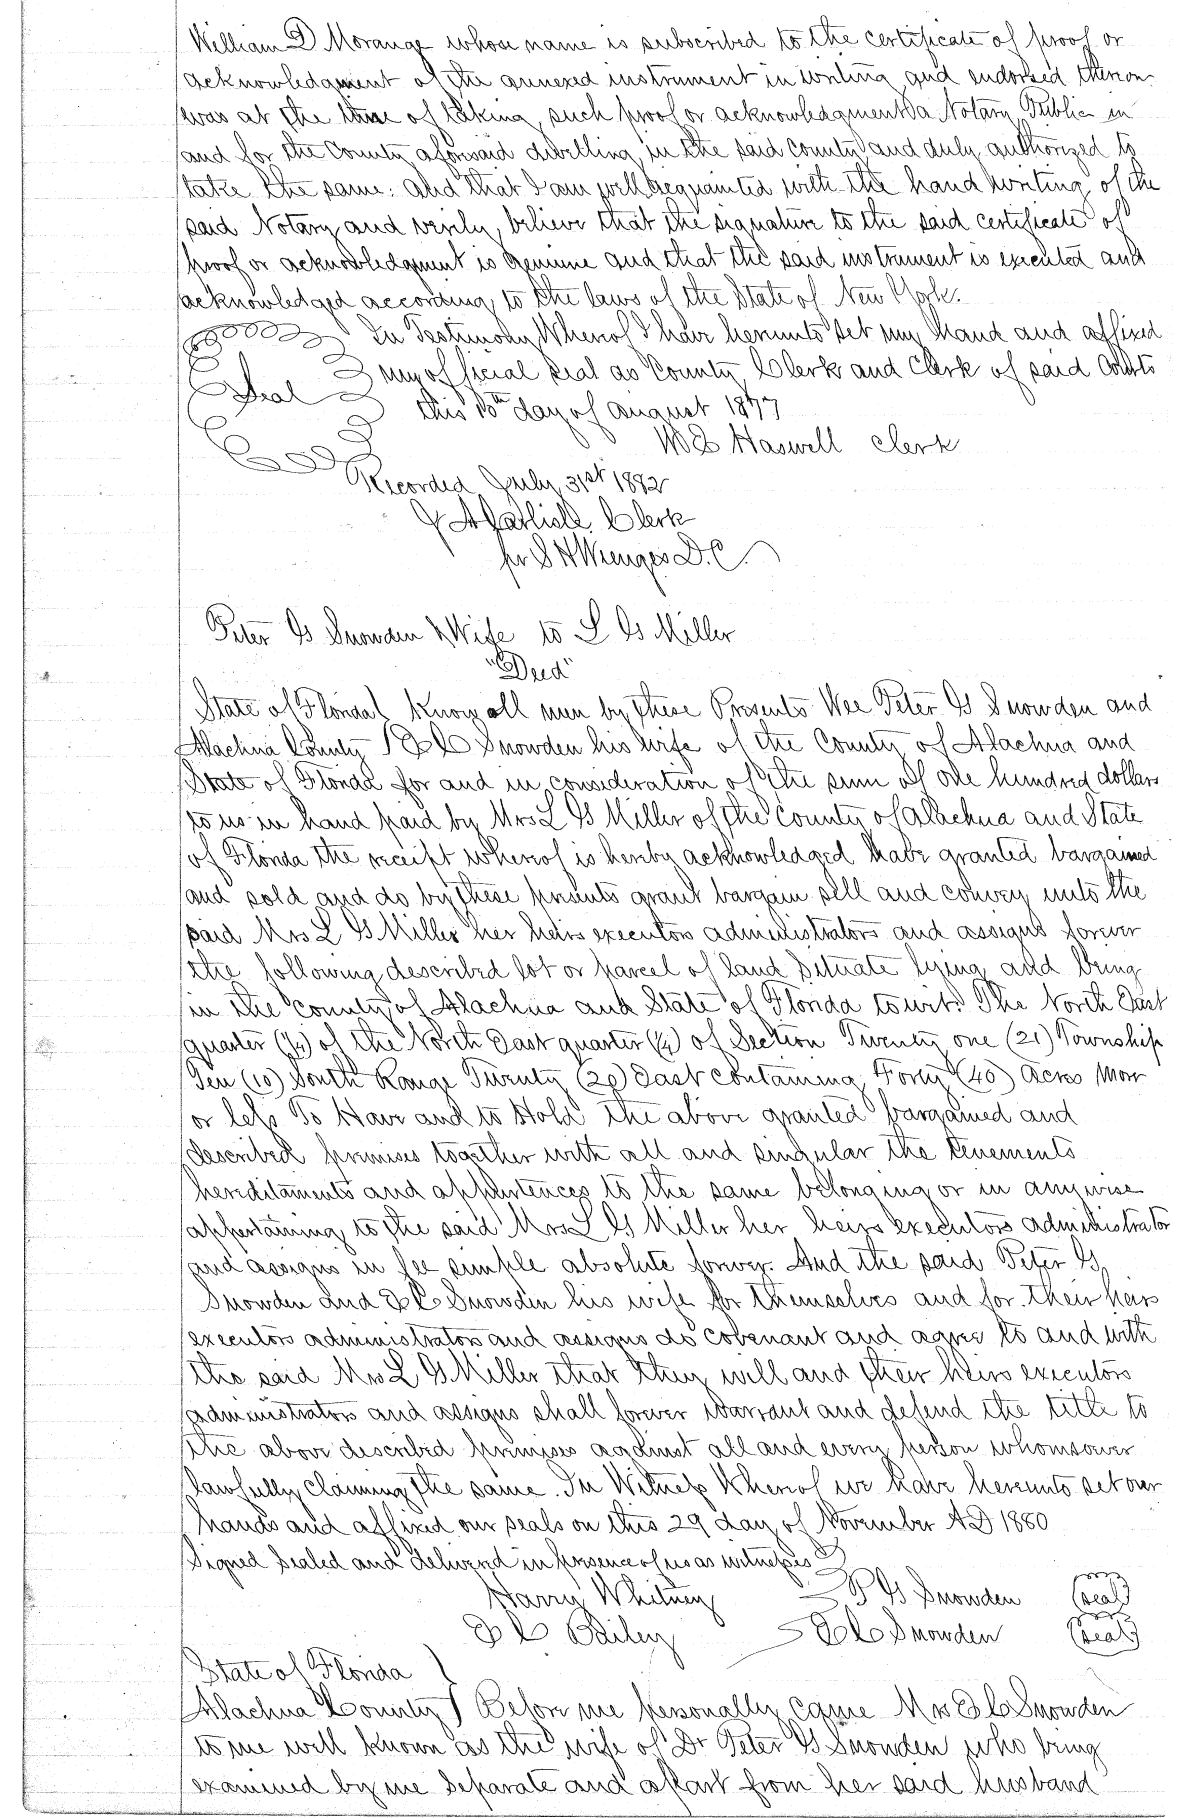 William D Morange whose name is subscribed to the certificate of proof or
acknowledgment of the annexed instrument in writing and endorsed thereon
was at the time of taking such proof or acknowledgment a Notary Public in
and for the County aforesaid dwelling in the said county and duly authorized to
take the same: And that I am well acquainted with the hand writing of the
said Notary and verily believe that the signature to the said certificate of
proof or acknowledgment is genuine and that the said instrument is executed and
acknowledged according to the laws of the State of New York.
In Testimony Whereof I have hereunto set my hand and affixed
Seal my official seal as County Clerk and Clerk of said Courts
this 10th day of August 1877
Haswell Clerk
Recorded July 31st 1882
J A Carlisle Clerk
pr S H Wienges D.C.
Peter G Snowden & Wife to L G Miller
"Deed"
State of Florida } Know all men by these Presents Wee Peter G Snowden and
Alachua County } E C Snowden his wife of the County of Alachua and
State of Florida for and in consideration of the sum of one hundred dollars
to us in hand paid by Mrs L G Miller of the County of Alachua and State
of Florida the receipt whereof is hereby acknowledged have granted bargained
and sold and do by these presents grant bargain sell and convey unto the
said Mrs L G Miller her heirs executors administrators and assigns forever
the following described lot or parcel of land Situate lying and being
in the County of Alachua and State of Florida towit: The North East
quarter (¼) of the North East quarter (¼) of Section Twenty one (21) Township
Ten (10) South Range Twenty (20) East containing Forty (40) Acres More
or less To Have and to Hold the above granted bargained and
described premises together with all and singular the tenements
hereditaments and appurtences to the same belonging or in anywise
appertaining to the said Mrs L G Miller her heirs executors administrator
and assigns in fee simple absolute forever. And the said Peter G
Snowden and E C Snowden his wife for themselves and for their heirs
executors administrators and assigns do covenant and agree to and with
the said Mrs L G Miller that they will and their heirs executors
administrators and assigns shall forever warrant and defend the title to
the above described premises against all and every person whomsoever
lawfully claiming the same. In Witness Whereof we have hereunto set our
hands and affixed our seals on this 29 day of November AD 1880
Signed Sealed and delivered in presence of us as witnesses
Harry Whitney P G Snowden (seal)
E C Bailey E C Snowden (seal)
State of Florida }
Alachua County } Before me personally came Mrs E C Snowden
to me well known as the wife of Dr Peter G Snowden who being
examined by me separate and apart from her said husband